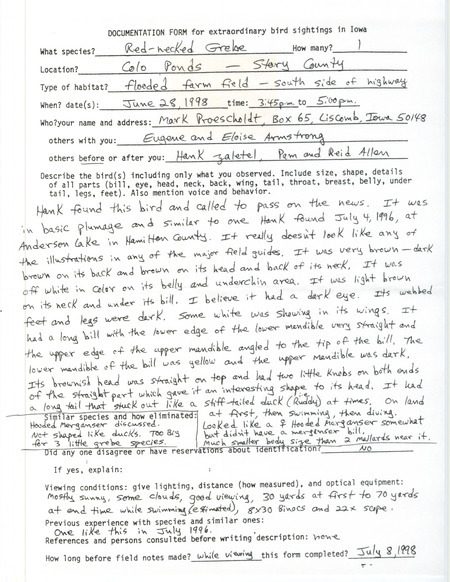 DOCUMENTATION FORM for extraordinary bird sightings in Iowa
What species? Red-necked Grebe How many? 1
Location? Colo Ponds — Story County
Type of habitat? flooded farm field - south side of highway
When? date(s): June 28, 1998 time: 3:45pm to 5:00pm.
Who?your name and address: Mark Proescholdt, Box 65, Liscomb, Iowa 50148
others with you: Eugene and Eloise Armstrong
others before or after you: Hank Zaletel, Pam and Reid Allen
Describe the bird(s) including only what you observed. Include size, shape, details
of all parts (bill, eye, head, neck, back, wing, tail, throat, breast, belly, under
tail, legs, feet). Also mention voice and behavior.
Hank found this bird and called to pass on the news. It was
in basic plumage and similar to one Hank found July 4, 1996, at
Anderson Lake in Hamilton County. It really doesn't look like any of
the illustrations in any of the major field guides. It was very brown - dark
brown on its back and brown on its head and back of its neck. It was
off white in color on its belly and underchin area. It was light brown
on its neck and under its bill. I believe it had a dark eye. Its webbed
feet and legs were dark. Some white was showing in its wings. It
had a long bill with the lower edge of the lower mandible very straight and
the upper edge of the upper mandible angled to the tip of the bill. The
lower mandible of the bill was yellow and the upper mandible was dark.
Its brownish head was straight on top and had two little knobs on both ends
of the straight part which gave it an interesting shape to its head. It had
a long tail that stuck out like a stiff-tailed duck (Ruddy) at times. On land
at first, then swimming, then diving.
Looked like a ♀ Hooded Merganser somewhat
but didn't have a merganser bill.
Much smaller body size than 2 mallards near it.
Similar species and how eliminated:
Hooded Merganser discussed.
Not shaped like ducks. Too Big
for 3 little grebe species.
Did any one disagree or have reservations about identification? NO
If yes, explain:
Viewing conditions: give lighting, distance (how measured), and optical equipment:
Mostly sunny, some clouds, good viewing, 30 yards at first to 70 yards
at end time while swimming (estimated), 8x30 Binocs and 22x scope.
Previous experience with species and similar ones:
One like this in July 1996.
References and persons consulted before writing description: none
How long before field notes made? while viewing this form completed? July 8, 1998